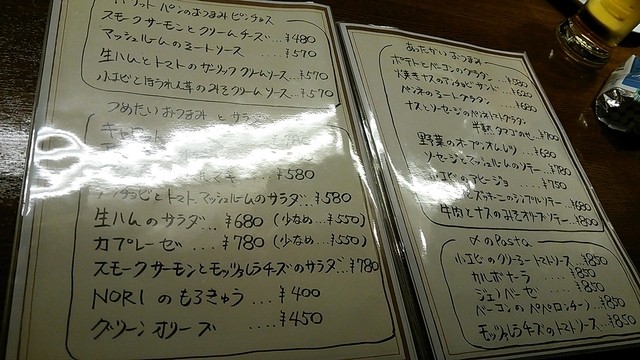 スモークサーモンとクリームチーズ...¥480
マッシュルームのミートソース ...¥570
生ハムとトマトのガーリッククリームソース...¥570
小エビとほうれん草のみそクリームソース...¥570
つめたいおつまみ と サラダ
アンチョビとトマト、マッシュルームのサラダ...¥580
生ハムのサラダ...¥680 (少なめ...¥550)
カプレーゼ ...¥780 (少なめ...¥550)
スモークサーモンとモッツァレラチーズのサラダ...¥780
NORIのもろきゅう ....¥400
グリーンオリーブ ....¥450
あったかいおつまみ
ポテトとベーコンのグラタン ...¥580
焼きナスのアンチョビサンド...¥620
ペンネのミートグラタン ...¥680
ナスとソーセージのペンネトマトグラタン
半熟タマゴのせ...¥700
野菜のオーブンオムレツ ...¥680
ソーセージとマッシュルームのソテー...¥780
小エビのアヒージョ ...¥750
ズッキーニのシンプルソテー...¥680
牛肉とナスのみそオリーブソテー...¥800
〆のPasta
小エビのクリーミートマトソース...¥850
カルボナーラ ...¥850
ジェノベーゼ ...¥850
ベーコンのペペロンチーノ ...¥850
モッツァレラチーズのトマトソース...¥850